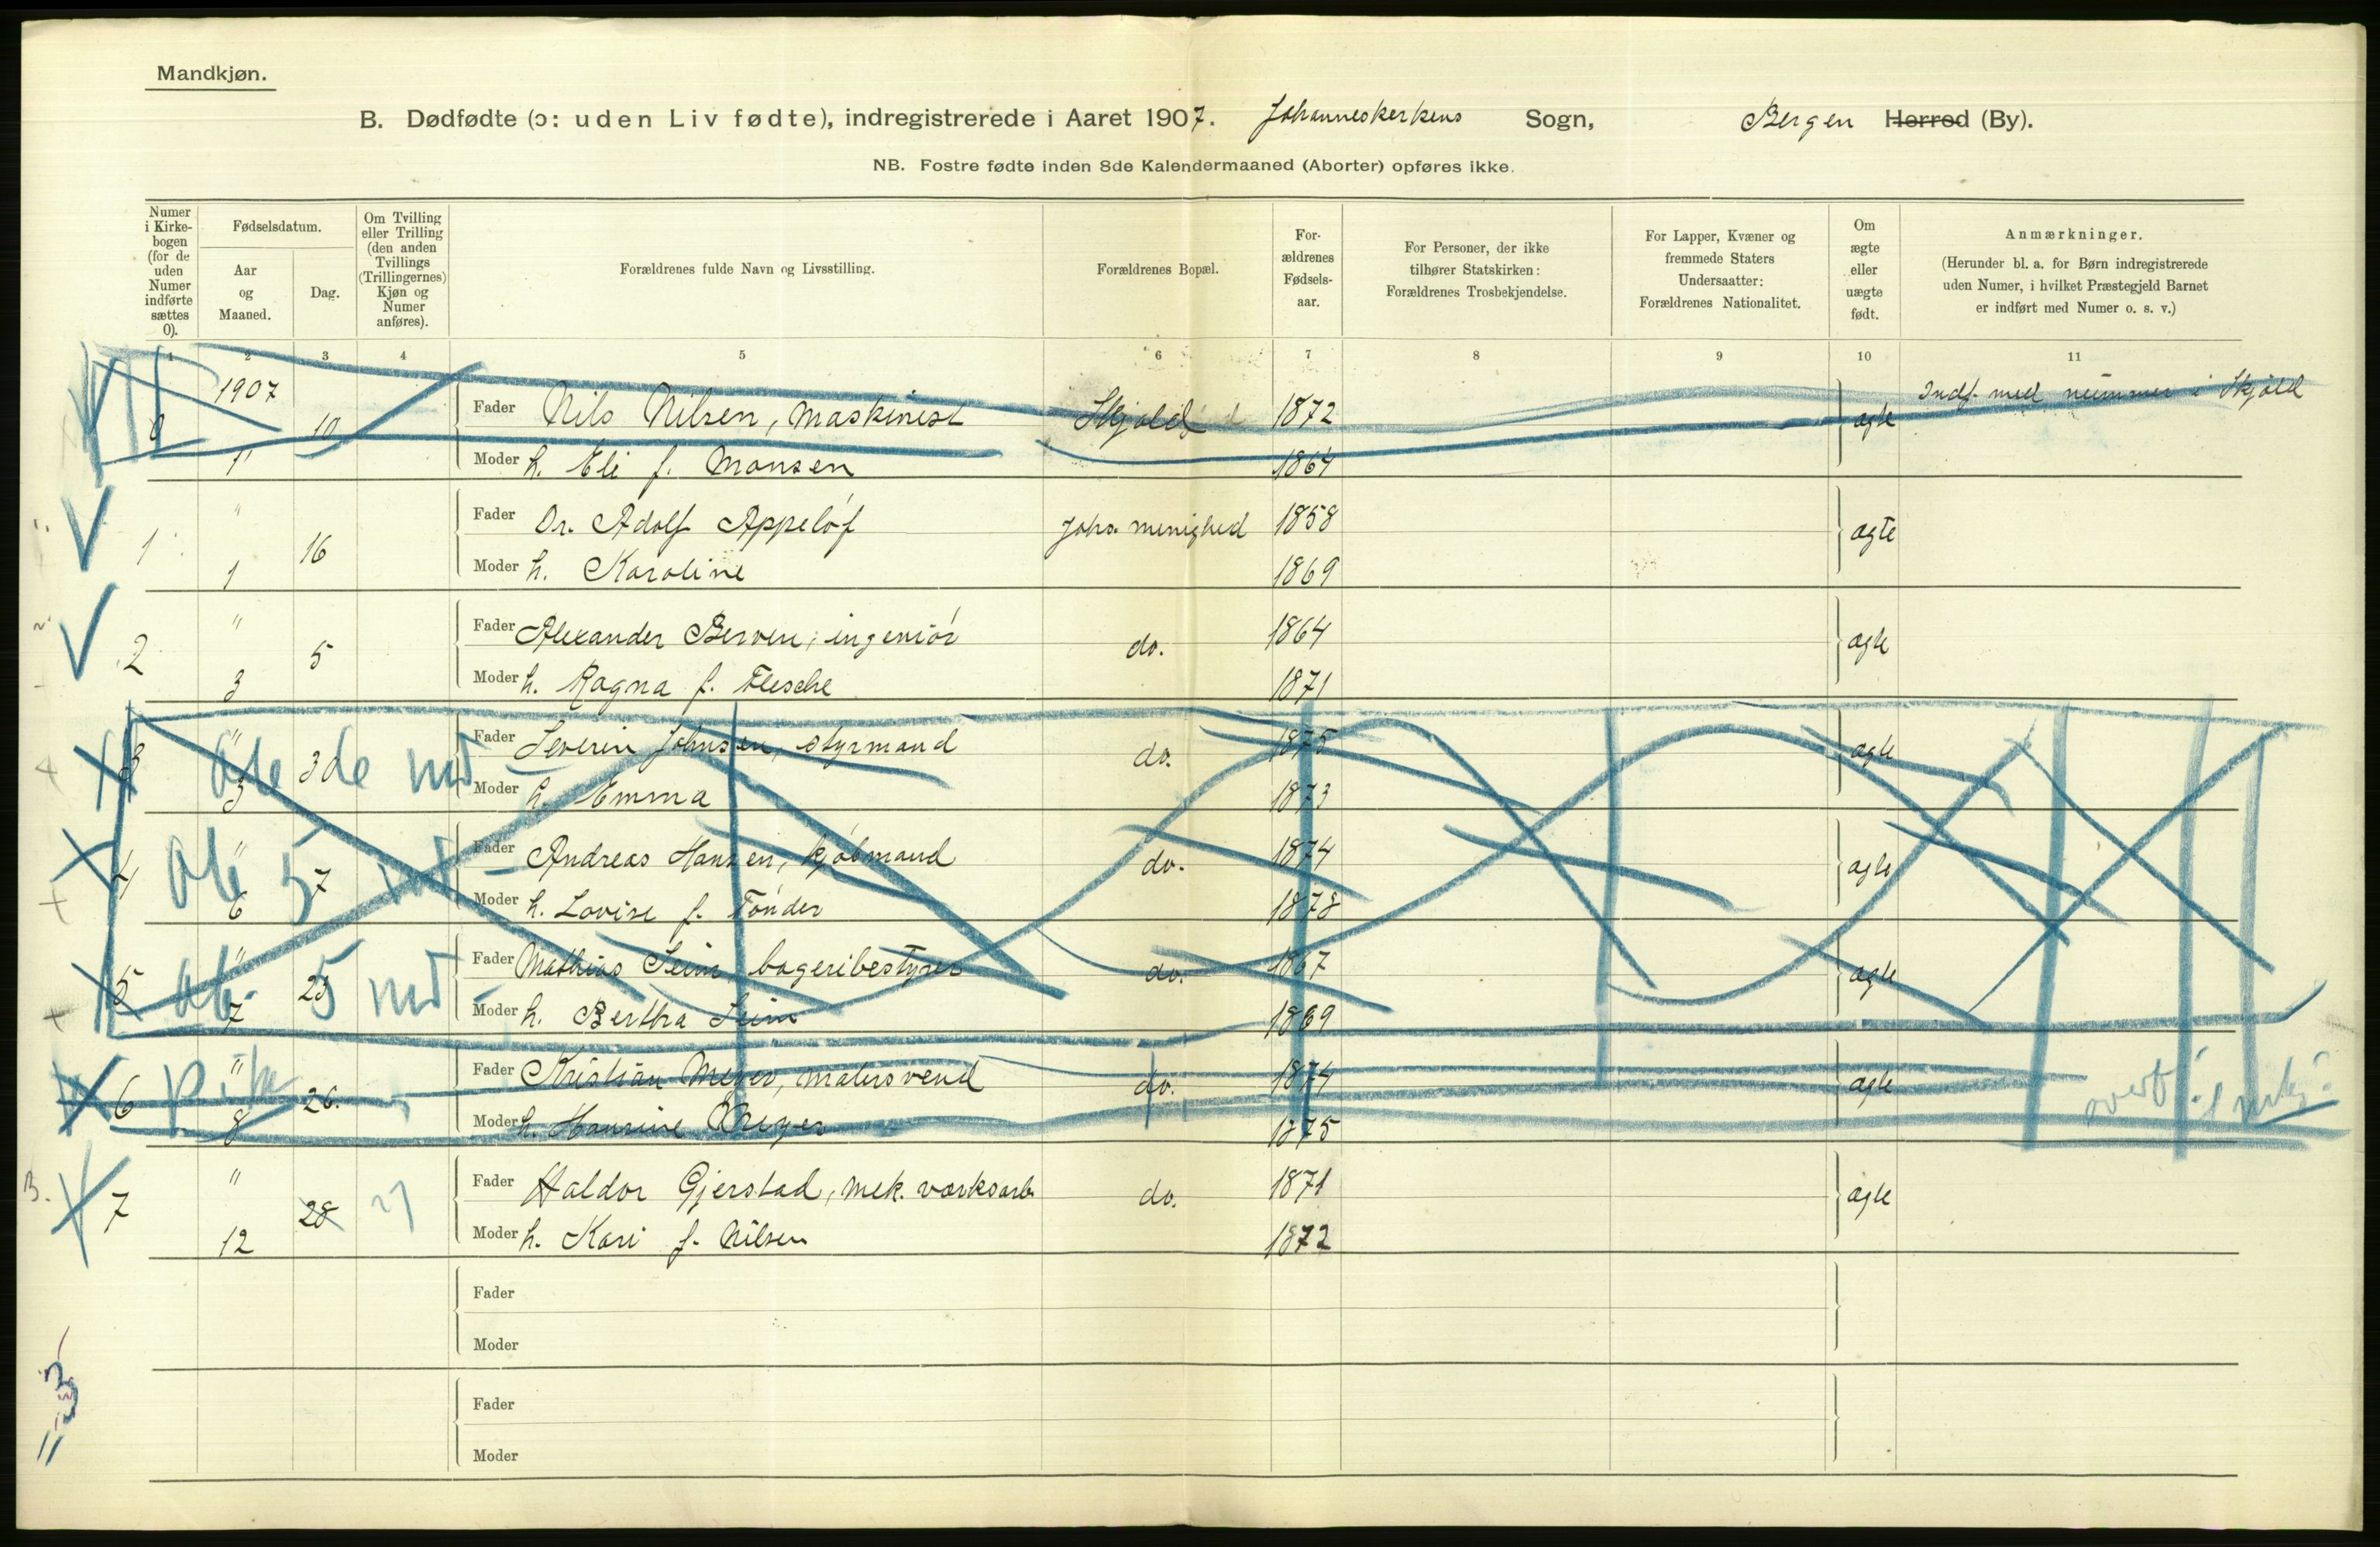 Mandkjøn.
B. Dødfødte (ɔ: uden Liv fødte), indregistrerede i Aaret 1907. Johanneskerkens Sogn, Bergen Herred (By).
NB. Fostre fødte inden 8de Kalendermaaned (Aborter) opføres ikke.
Numer i Kirkebogen (for de uden Numer indførte sættes 0).
Fødselsdatum.
Aar og Maaned.
Dag.
Om Tvilling eller Trilling (den anden Tvillings (Trillingernes) Kjøn og Numer anføres).
Forældrenes fulde Navn og Livsstilling.
Forældrenes Bopæl.
Forældrenes Fødselsaar.
For Personer, der ikke tilhører Statskirken: Forældrenes Trosbekjendelse.
For Lapper, Kvæner og fremmede Staters Undersaatter: Forældrenes Nationalitet.
Om ægte eller uægte født.
Anmærkninger.
(Herunder bl. a. for Børn indregistrerede uden Numer, i hvilket Præstegjeld Barnet er indført med Numer o. s. v.)
1 2 3 4 5 6 7 8 9 10 11
1907
0 10 Fader Nils Nilsen, maskinist Skjold 1872 ægte Indf. med nummer i Skjold
1 Moder h. Eli f. Monsen 1864
1 " 16 Fader Dr. Adolf Appeløf Johs. menighed 1858 ægte
1 Moder h. Karoline 1869
2 " 5 Fader Alexander Berven, ingeniør do. 1864 ægte
3 Moder h. Ragna f. Flesche 1871
3 " 3 Fader Severin Johnsen, styrmand do. 1875 ægte
3 Moder h. Emma 1873
4 " 7 Fader Andreas Hansen, kjøbmand do. 1874 ægte
6 Moder h. Lovise f. Tønder 1878
5 " 23 Fader Mathias Seim bageribestyrer do. 1867 ægte
7 Moder h. Bertha Seim 1869
6 " 26. Fader Kristian Meyer, malersvend do. 1874 ægte
8 Moder h. Hansine Meyer 1875
7 " 28 27 Fader Haldor Gjerstad, mek. værksarb. do. 1871 ægte
12 Moder h. Kari f. Nilsen 1872
Fader
Moder
Fader
Moder